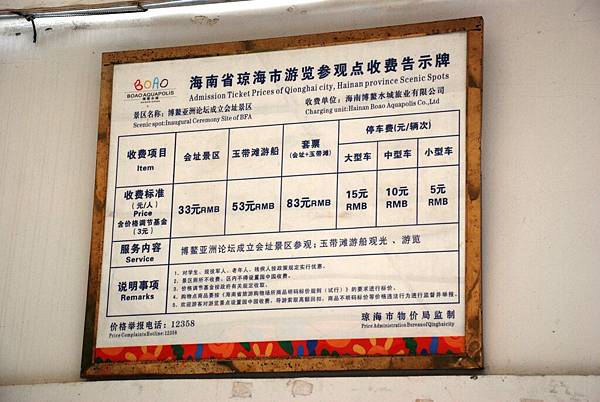 BOAO
BOAO AQUAPOLIS
博鳌水城
海南省琼海市游览参观点收费告示牌
Admission Ticket Prices of Qionghai city, Hainan province Scenic Spots
景区名称：博鳌亚洲论坛成立会址景区
Scenic spot:Inaugural Ceremony Site of BFA
收费单位：海南博鳌水城旅业有限公司
Charging unit:Hainan Boao Aquapolis Co.,Ltd
收费项目
Item
会址景区
玉带滩游船
套票
(会址+玉带滩)
停车费(元/辆次)
大型车
中型车
小型车
收费标准
(元/人)
Price
含价格调节基金
(3元)
33元RMB
53元RMB
83元RMB
15元
RMB
10元
RMB
5元
RMB
服务内容
Service
博鳌亚洲论坛成立会址景区参观；玉带滩游船观光、游览
说明事项
Remarks
1、对学生、现役军人、老年人、残疾人按政策规定实行优惠。
2、景区厕所不收费、区内不得设置园中园收费。
3、价格调节基金按政府有关规定收费。
4、购物点商品要按《海南省旅游购物场所商品明码标价规则（试行）》的要求进行标价。
5、欢迎游客对游览景点设置园中园收费、导游索取高额回扣、商品不明码标价等价格违法行为进行监督并举报。
价格举报电话：12358
Price Complaints Hotline:12358
琼海市物价局监制
Price Administration Bureau of Qionghai city